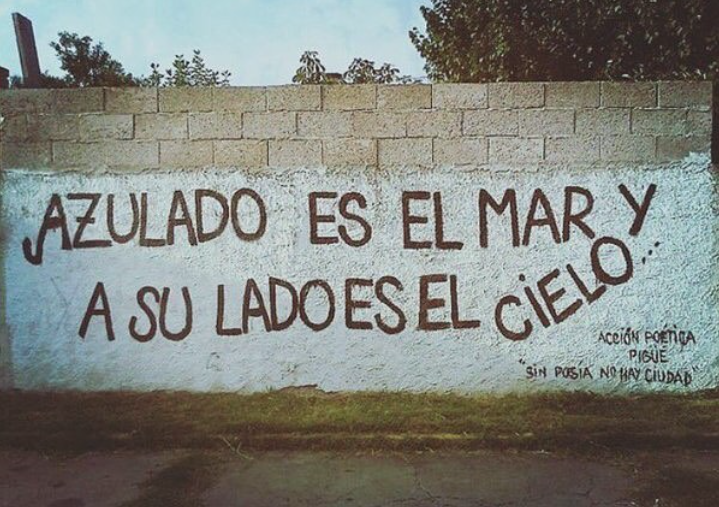 AZULADO ES EL MAR Y
A SU LADO ES EL CIELO...
ACCIÓN POÉTICA
PIGUE
"SIN POSIA NO HAY CIUDAD"